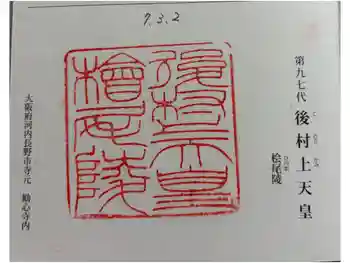 7.3.2
第九七代 後村上天皇
桧尾陵
後村上天皇
檜尾陵
大阪府河内長野市寺元 観心寺内